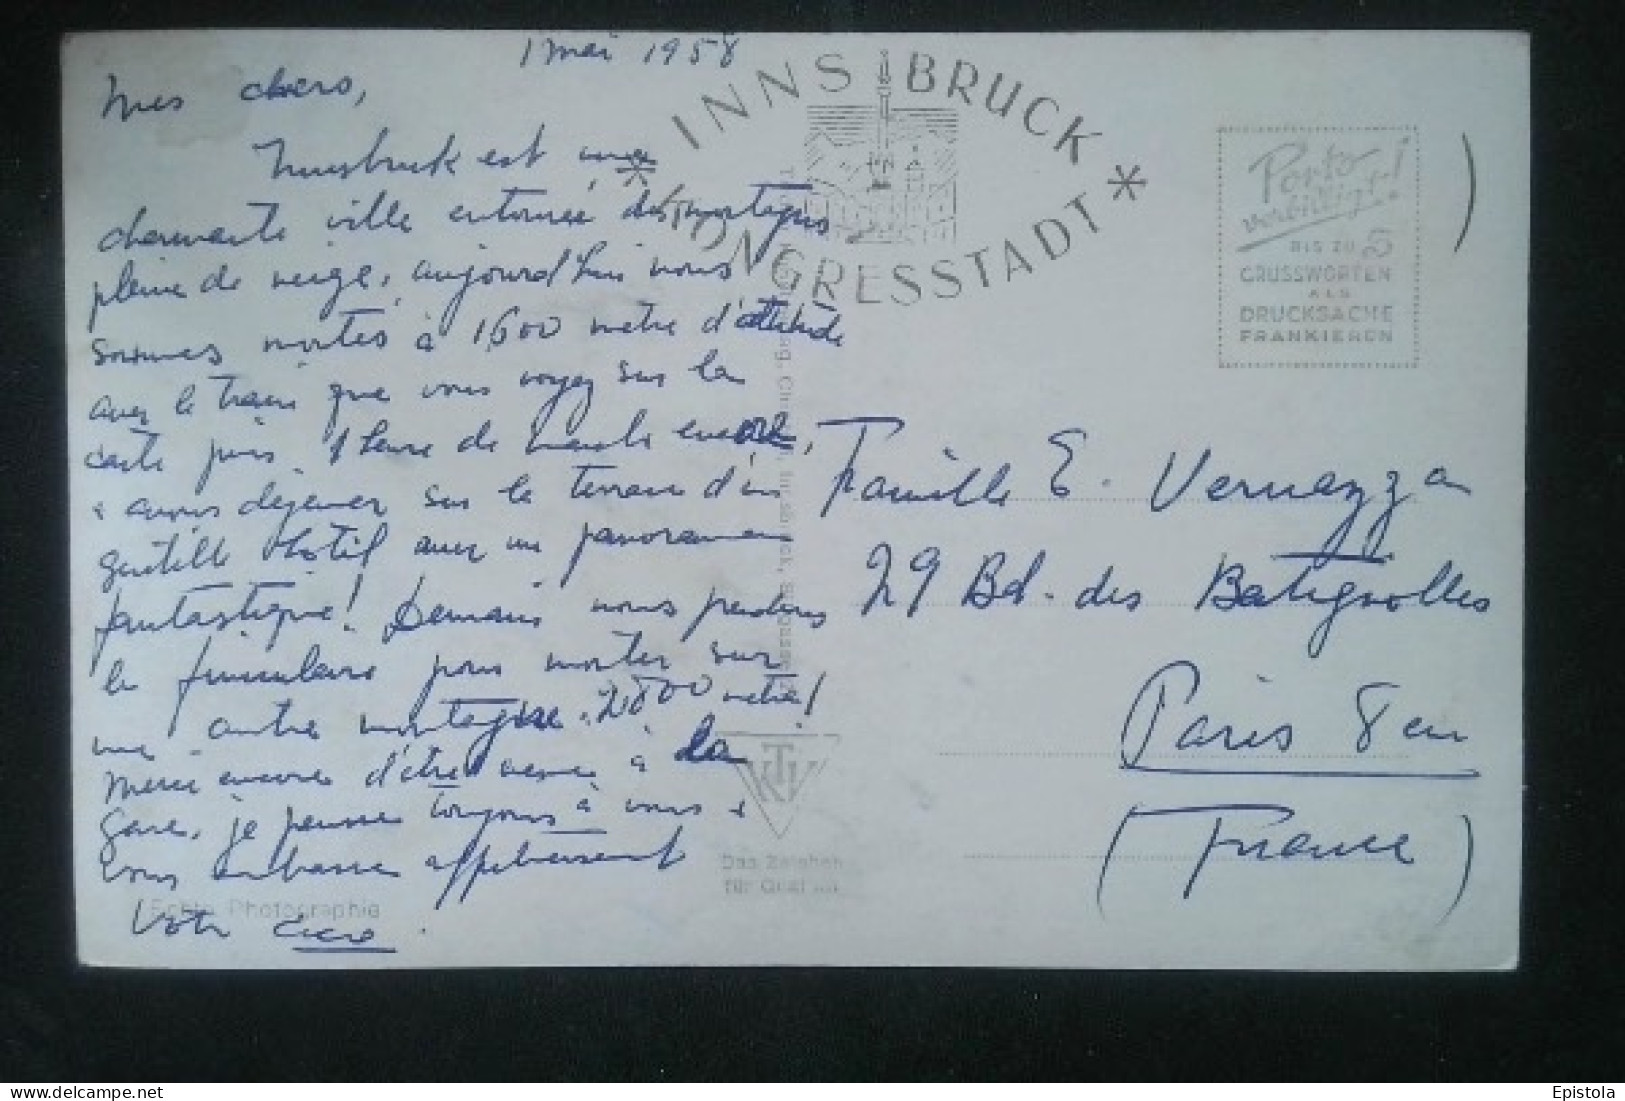 1 mai 1958
Mes chers,
Innsbruck est une
charmante ville entourée des montagnes
pleine de neige, aujourd'hui nous
sommes montés à 1600 metre d'altitude
avec le train que vous voyez sur la
carte puis 1 heure de marche encore,
avons déjeuner sur la terrasse d'un
gentille hotel avec un panorama
fantastique! Demain nous prendrons
le funiculaire pour monter sur
une autre montagne 2800 metre!
Merci encores d'être venus à la
Gare, je pense toujours à vous
vous embrasse
Votre
INNSBRUCK
* KONGRESSSTADT *
Porto
verbilligt!
BIS ZU 5
GRUSSWORTEN
ALS
DRUCKSACHE
FRANKIEREN
Famille E. Vernazza
29 Bd. des Batignolles
Paris 8em
(France)
KTV
Das Zeichen
für Qualität
Echte Photographie
Epistola